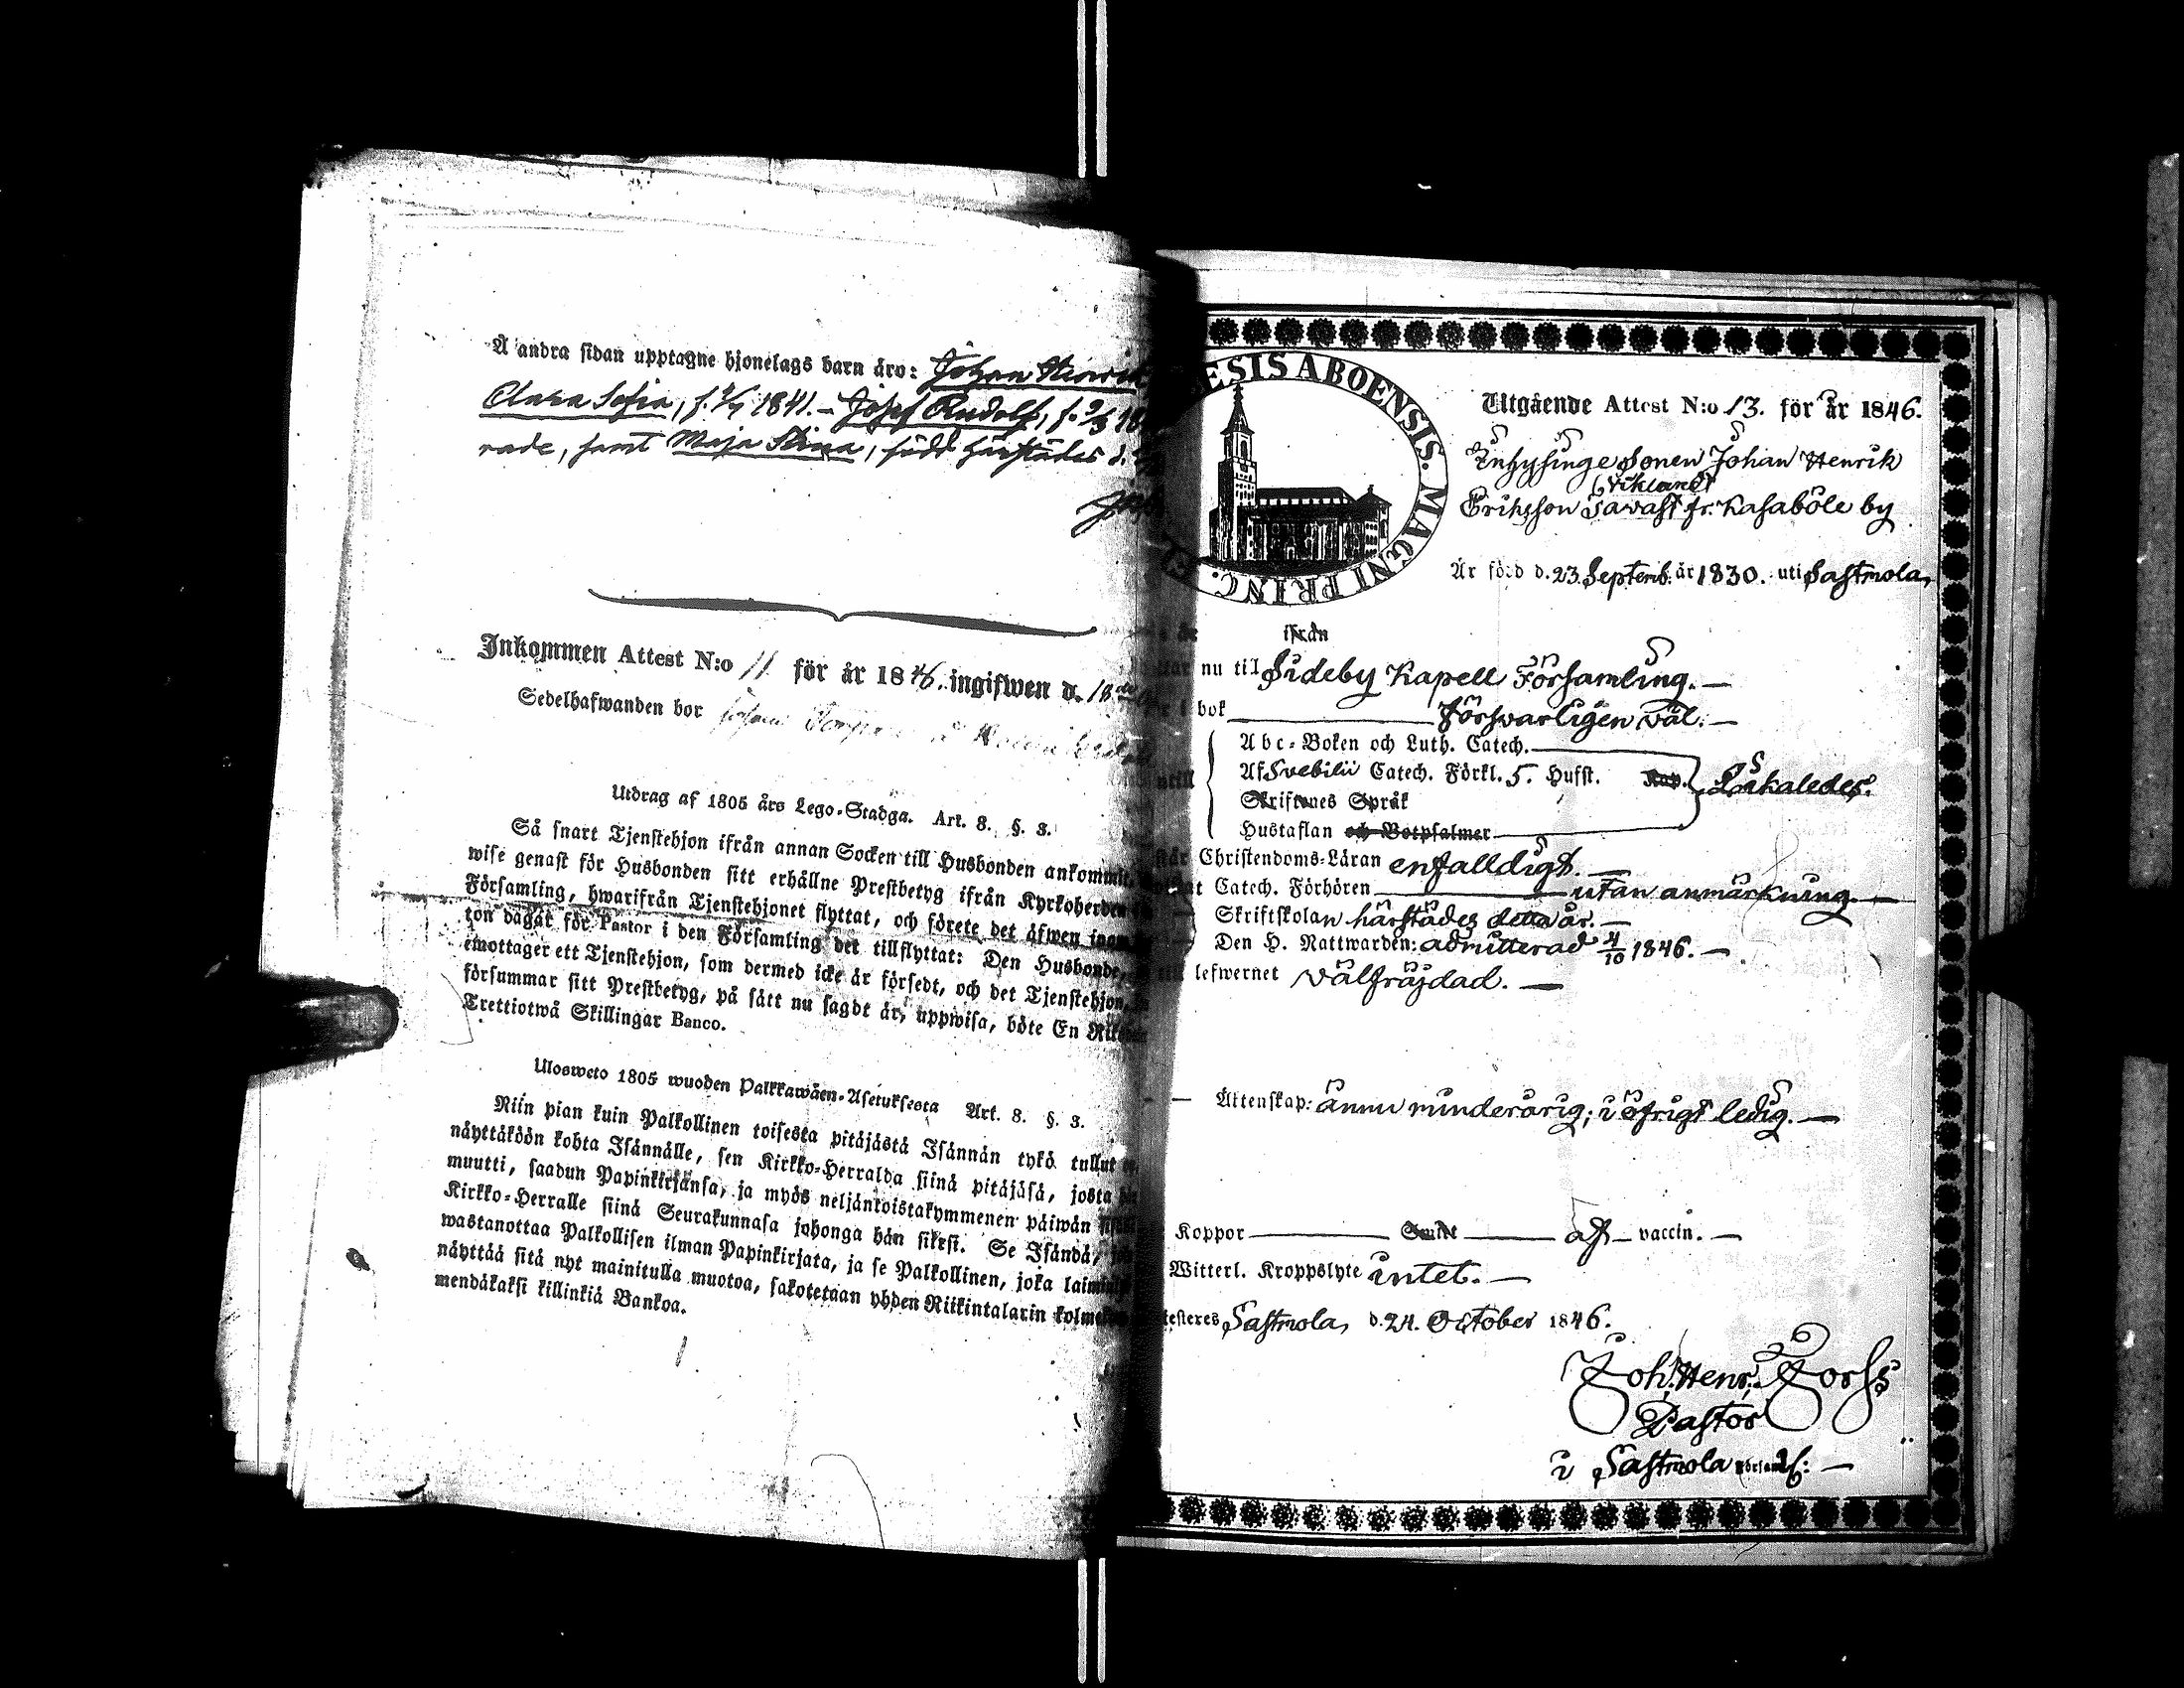 Å andra sidan upptagne hjonelags barn äro: Johan Henrik
Clara Sofia, f. 1841. — Josef Rudolf, f.
rade, samt Maja Stina, född härstädes d.
Inkommen Attest N:o 11 för år 1846. ingifwen d. 18de
Sedelhafwanden bor
Utdrag af 1805 års Lego-Stadga. Art. 8. §. 3.
Så snart Tjenstehjon ifrån annan Socken till Husbonden ankommit,
wise genast för Husbonden sitt erhållne Prestbetyg ifrån Kyrkoherden
Församling, hwarifrån Tjenstehjonet flyttat, och förete det äfwen inom
ton dagar för Pastor i den Församling det tillflyttat: Den Husbonde,
emottager ett Tjenstehjon, som dermed icke är försedt, och det Tjenstehjon,
försummar sitt Prestbetyg, på sätt nu sagdt är, uppwisa, böte En
Trettiotwå Skillingar Banco.
Ulosweto 1805 wuoden Palkkawäen-Asetuksesta Art. 8. §. 3.
Niin pian kuin Palkollinen toisesta pitäjästä Isännän tykö tullut
näyttäköön kohta Isännälle, sen Kirkko-Herralda siinä pitäjäsä, josta
muutti, saadun Papinkirjansa, ja myös neljäntoistakymmenen päiwän
Kirkko-Herralle siinä Seurakunnasa johonga hän siirsi. Se Isändä,
wastanottaa Palkollisen ilman Papinkirjata, ja se Palkollinen, joka
näyttää sitä nyt mainitulla muotoa, sakotetaan yhden Riikintalarin
mendäkaksi killinkiä Bankoa.
ESIS ABOENSIS. MAGNI PRINC.
Utgående Attest N:o 13. för år 1846.
Inhysinge Sonen Johan Henrik
Viklund
Eriksson Savast fr. Kasaböle by
Är född d. 23. Septemb. år 1830. uti Sastmola,
ifrån
nu til Sideby Kapell Församling. —
bok Försvarligen väl. —
Abc-Boken och Luth. Catech.
Af Svebilii Catech. Förkl. 5. Hufst. Kap. Likaledes.
Skriftenes Språk
Hustaflan och Botpsalmer
Christendoms-Läran enfalldigt. —
Catech. Förhören utan anmärkning. —
Skriftskolan härstädes detta år. —
Den H. Nattwarden: admitterad 4/10 1846. —
till lefwernet välfräjdad. —
— Äktenskap: ännu minderårig; i öfrigt ledig. —
Koppor haft vaccin. —
Witterl. Kroppslyte intet. —
testeres Sastmola, d. 24. October 1846.
Joh. Henr. Forss
Pastor
i Sastmola